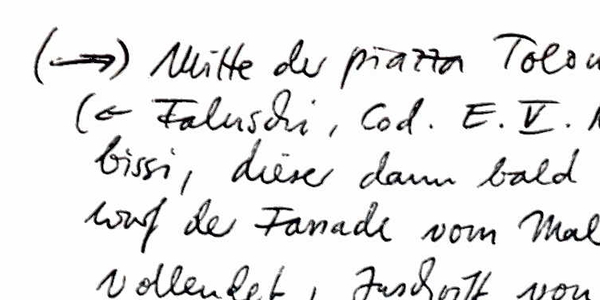 (→) Mitte der piazza Tolom
(← Faluschi, Cod. E. V.
bissi, dieser dann bald
wurf der Fassade vom Mal
vollendet, Inschrift von